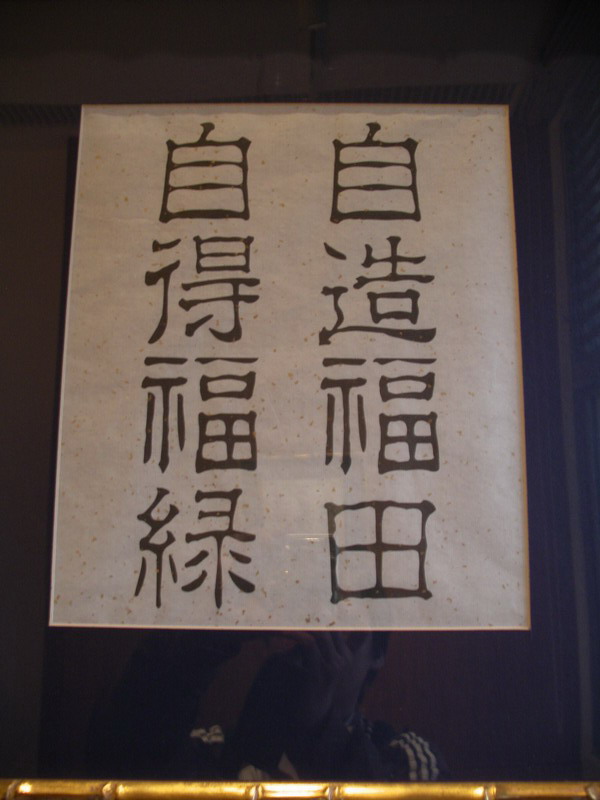 自造福田
自得福緑